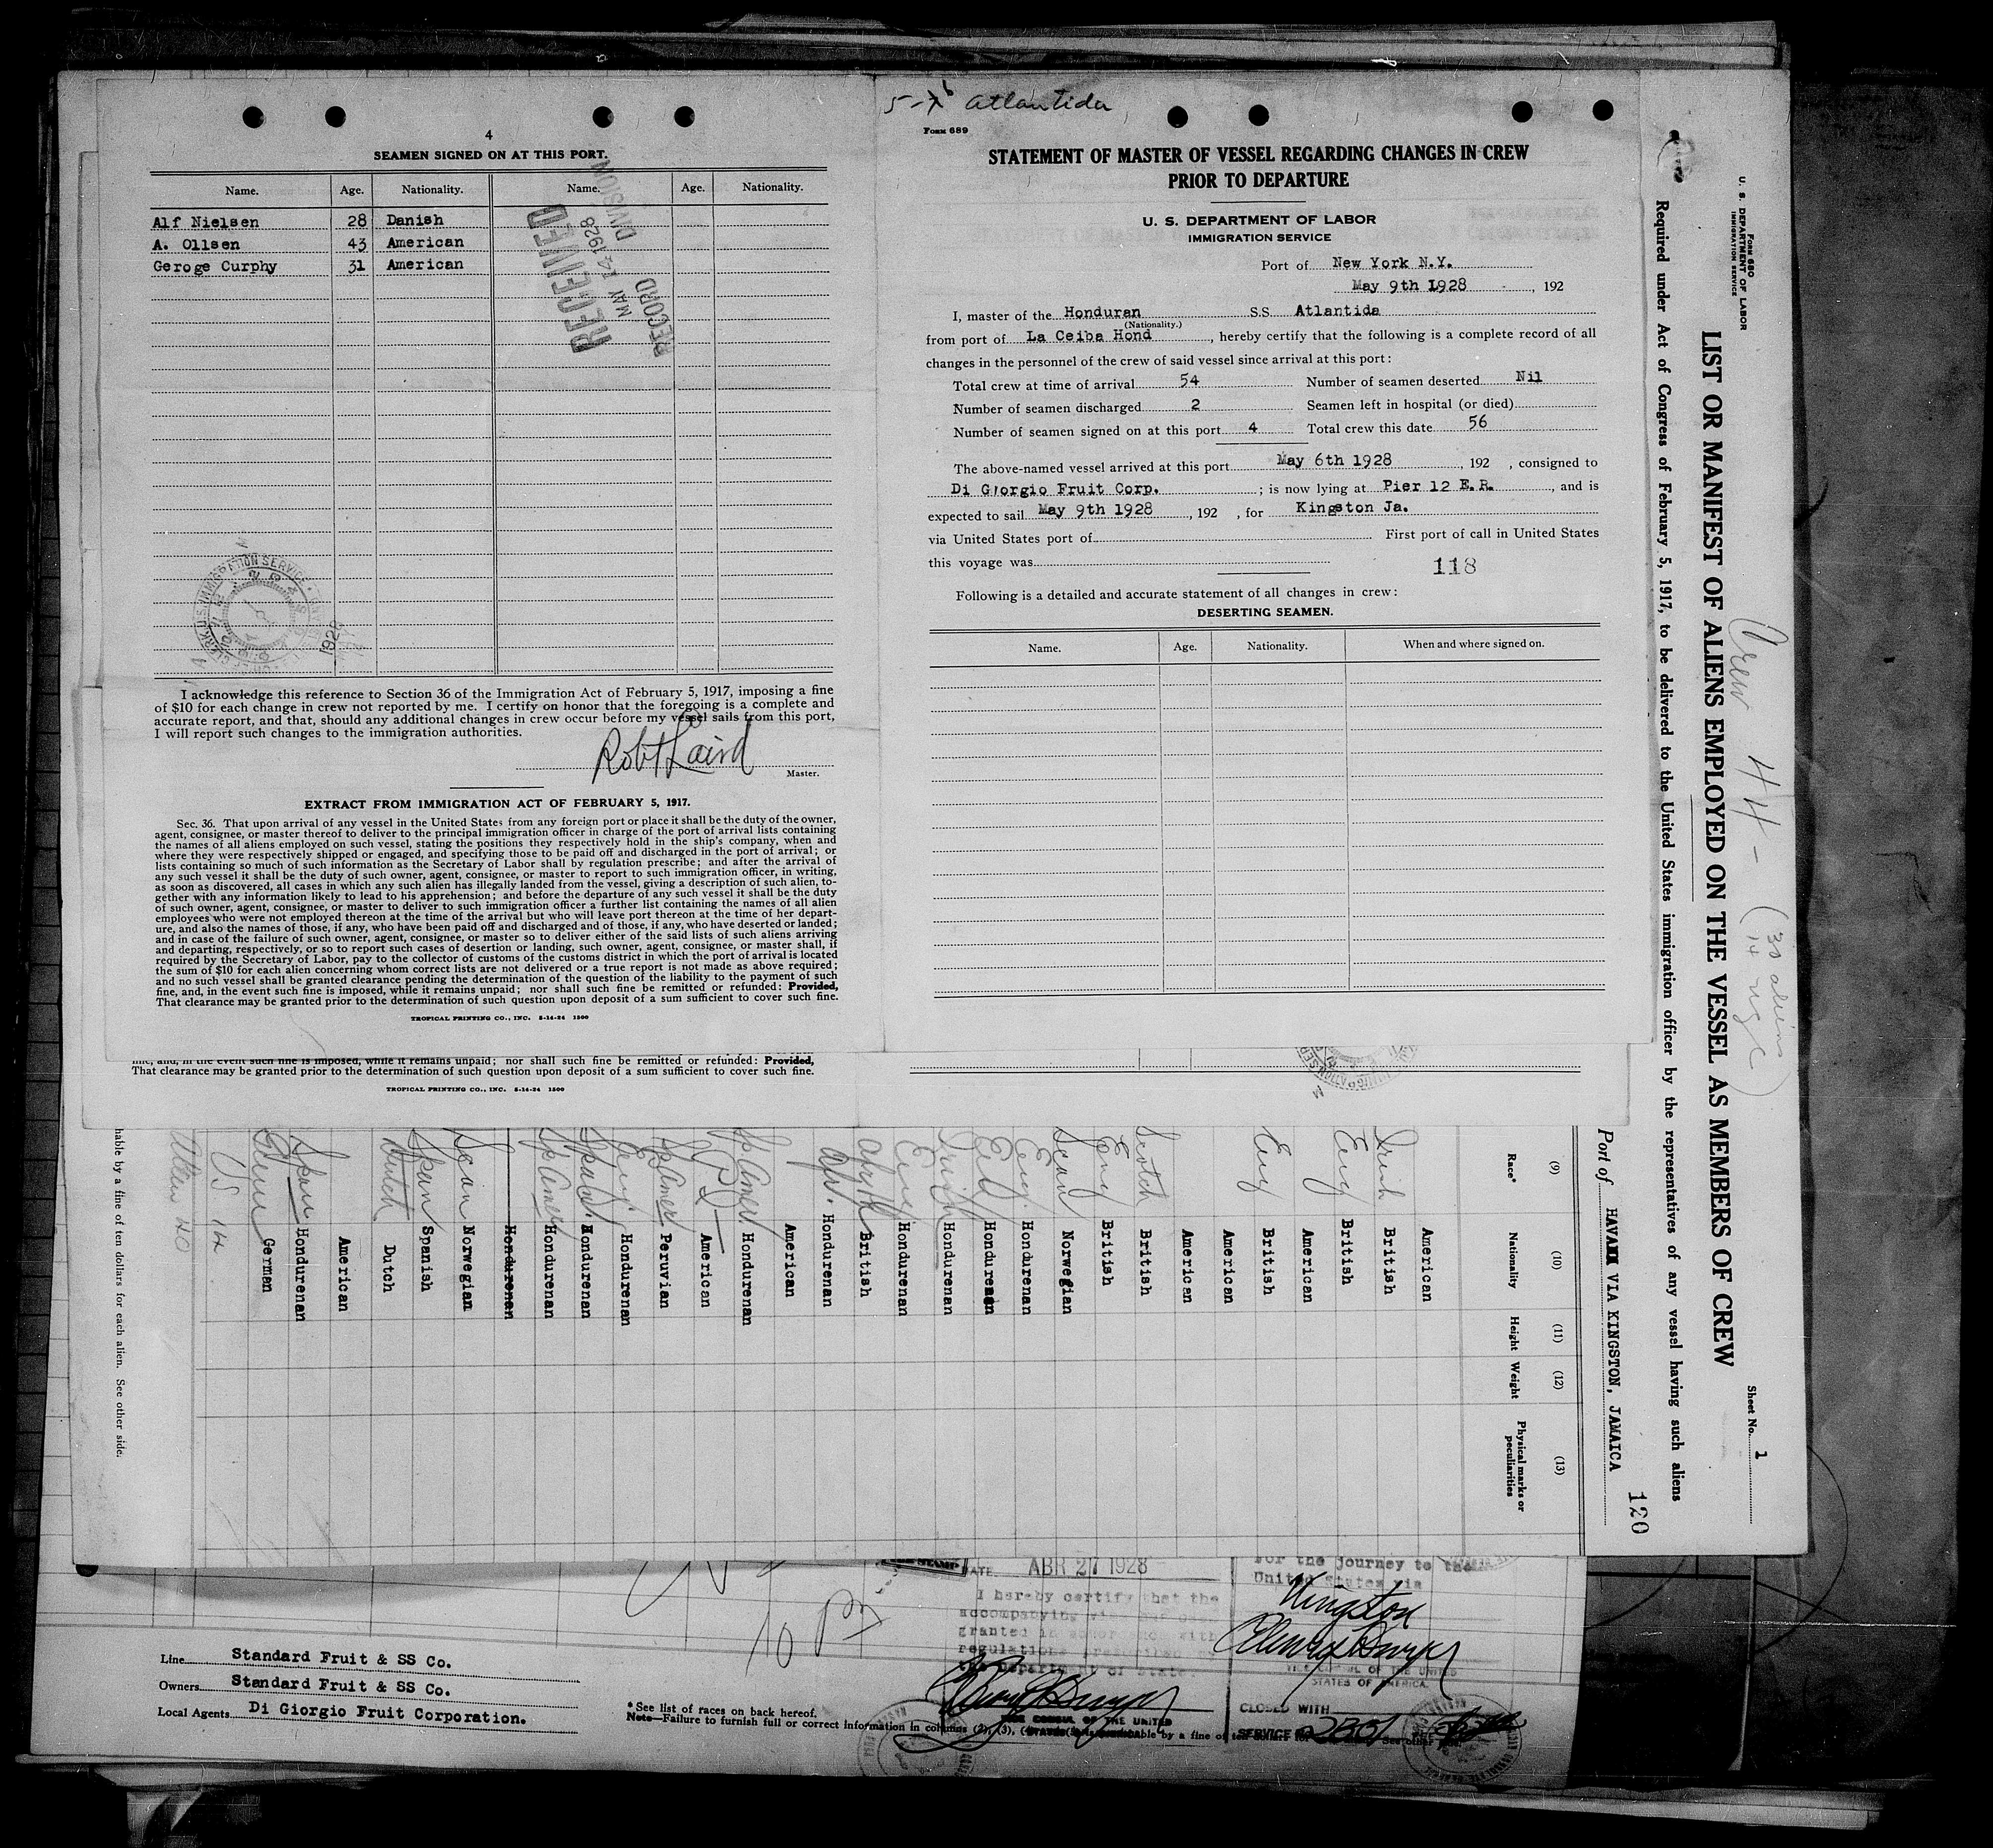 4
SEAMEN SIGNED ON AT THIS PORT.
Name. Age. Nationality. Name. Age. Nationality.
Alf Nielsen 28 Danish
A. Ollsen 43 American
Geroge Curphy 31 American
RECEIVED
MAY 14 1928
RECORD DIVISION
I acknowledge this reference to Section 36 of the Immigration Act of February 5, 1917, imposing a fine
of $10 for each change in crew not reported by me. I certify on honor that the foregoing is a complete and
accurate report, and that, should any additional changes in crew occur before my vessel sails from this port,
I will report such changes to the immigration authorities.
Robt Laird
Master.
EXTRACT FROM IMMIGRATION ACT OF FEBRUARY 5, 1917.
Sec. 36. That upon arrival of any vessel in the United States from any foreign port or place it shall be the duty of the owner,
agent, consignee, or master thereof to deliver to the principal immigration officer in charge of the port of arrival lists containing
the names of all aliens employed on such vessel, stating the positions they respectively hold in the ship's company, when and
where they were respectively shipped or engaged, and specifying those to be paid off and discharged in the port of arrival; or
lists containing so much of such information as the Secretary of Labor shall by regulation prescribe; and after the arrival of
any such vessel it shall be the duty of such owner, agent, consignee, or master to report to such immigration officer, in writing,
as soon as discovered, all cases in which any such alien has illegally landed from the vessel, giving a description of such alien, to-
gether with any information likely to lead to his apprehension; and before the departure of any such vessel it shall be the duty
of such owner, agent, consignee, or master to deliver to such immigration officer a further list containing the names of all alien
employees who were not employed thereon at the time of the arrival but who will leave port thereon at the time of her depart-
ure, and also the names of those, if any, who have been paid off and discharged and of those, if any, who have deserted or landed;
and in case of the failure of such owner, agent, consignee, or master so to deliver either of the said lists of such aliens arriving
and departing, respectively, or so to report such cases of desertion or landing, such owner, agent, consignee, or master shall, if
required by the Secretary of Labor, pay to the collector of customs of the customs district in which the port of arrival is located
the sum of $10 for each alien concerning whom correct lists are not delivered or a true report is not made as above required;
and no such vessel shall be granted clearance pending the determination of the question of the liability to the payment of such
fine, and, in the event such fine is imposed, while it remains unpaid; nor shall such fine be remitted or refunded: Provided,
That clearance may be granted prior to the determination of such question upon deposit of a sum sufficient to cover such fine.
TROPICAL PRINTING CO., INC. 5-14-24 1500
fine, and, in the event such fine is imposed, while it remains unpaid; nor shall such fine be remitted or refunded: Provided,
That clearance may be granted prior to the determination of such question upon deposit of a sum sufficient to cover such fine.
TROPICAL PRINTING CO., INC. 5-14-24 1500
Atlantida
Form 689
STATEMENT OF MASTER OF VESSEL REGARDING CHANGES IN CREW
PRIOR TO DEPARTURE
U. S. DEPARTMENT OF LABOR
IMMIGRATION SERVICE
Port of New York N.Y.
May 9th 1928, 192
I, master of the Honduran S.S. Atlantida
(Nationality.)
from port of La Ceiba Hond, hereby certify that the following is a complete record of all
changes in the personnel of the crew of said vessel since arrival at this port:
Total crew at time of arrival 54 Number of seamen deserted Nil
Number of seamen discharged 2 Seamen left in hospital (or died)
Number of seamen signed on at this port 4 Total crew this date 56
The above-named vessel arrived at this port May 6th 1928, 192 , consigned to
Di Giorgio Fruit Corp. ; is now lying at Pier 12 E.R. , and is
expected to sail May 9th 1928 , 192 , for Kingston Ja.
via United States port of First port of call in United States
this voyage was
118
Following is a detailed and accurate statement of all changes in crew:
DESERTING SEAMEN.
Name. Age. Nationality. When and where signed on.
Form 680
U. S. DEPARTMENT OF LABOR
IMMIGRATION SERVICE
Crew 44 - (30 aliens
Sheet No. 1
LIST OR MANIFEST OF ALIENS EMPLOYED ON THE VESSEL AS MEMBERS OF CREW
Required under Act of Congress of February 5, 1917, to be delivered to the United States immigration officer by the representatives of any vessel having such aliens
120
Port of HAVANA VIA KINGSTON, JAMAICA
(9) (10) (11) (12) (13)
Race* Nationality Height Weight Physical marks or peculiarities
American
Irish British
Eng British
American
Eng British
American
American
Scotch British
Eng British
Scan Norwegian
Eng. Hondurenan
Hondurenan
Irish Hondurenan
Eng Hondurenan
British
Hondurenan
American
Sp Amer Hondurenan
American
Sp Amer Peruvian
Eng Hondurenan
Hondurenan
Sp Amer Hondurenan
Hondurenan
Scan Norwegian
Span Spanish
Dutch Dutch
American
Span Hondurenan
German
US 14
Alien 40
hable by a fine of ten dollars for each alien. See other side.
DATE ABR 27 1928
I hereby certify that the
accompanying
granted in accordance with
regulations prescribed by
the Department of State.
For the journey to the
United States via
Kingston
VICE CONSUL OF THE UNITED
STATES OF AMERICA
CLOSED WITH
SERVICE No 2801
Line Standard Fruit & SS Co.
Owners Standard Fruit & SS Co.
Local Agents Di Giorgio Fruit Corporation.
* See list of races on back hereof.
Note—Failure to furnish full or correct information in columns
by a fine of ten dollars for